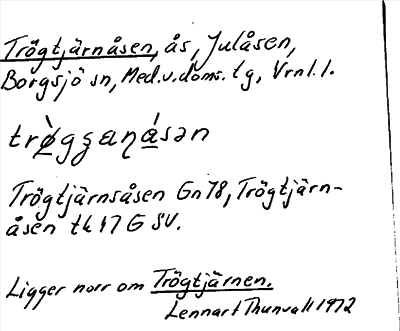 Trögtjärnåsen, ås, Julåsen,
Borgsjö sn, Med.v.doms. tg, Vrnl. l.
Trögtjärnsåsen Gn 78, Trögtjärn-
åsen tk 17 G SV.
Ligger norr om Trögtjärnen.
Lennart Thunvall 1972